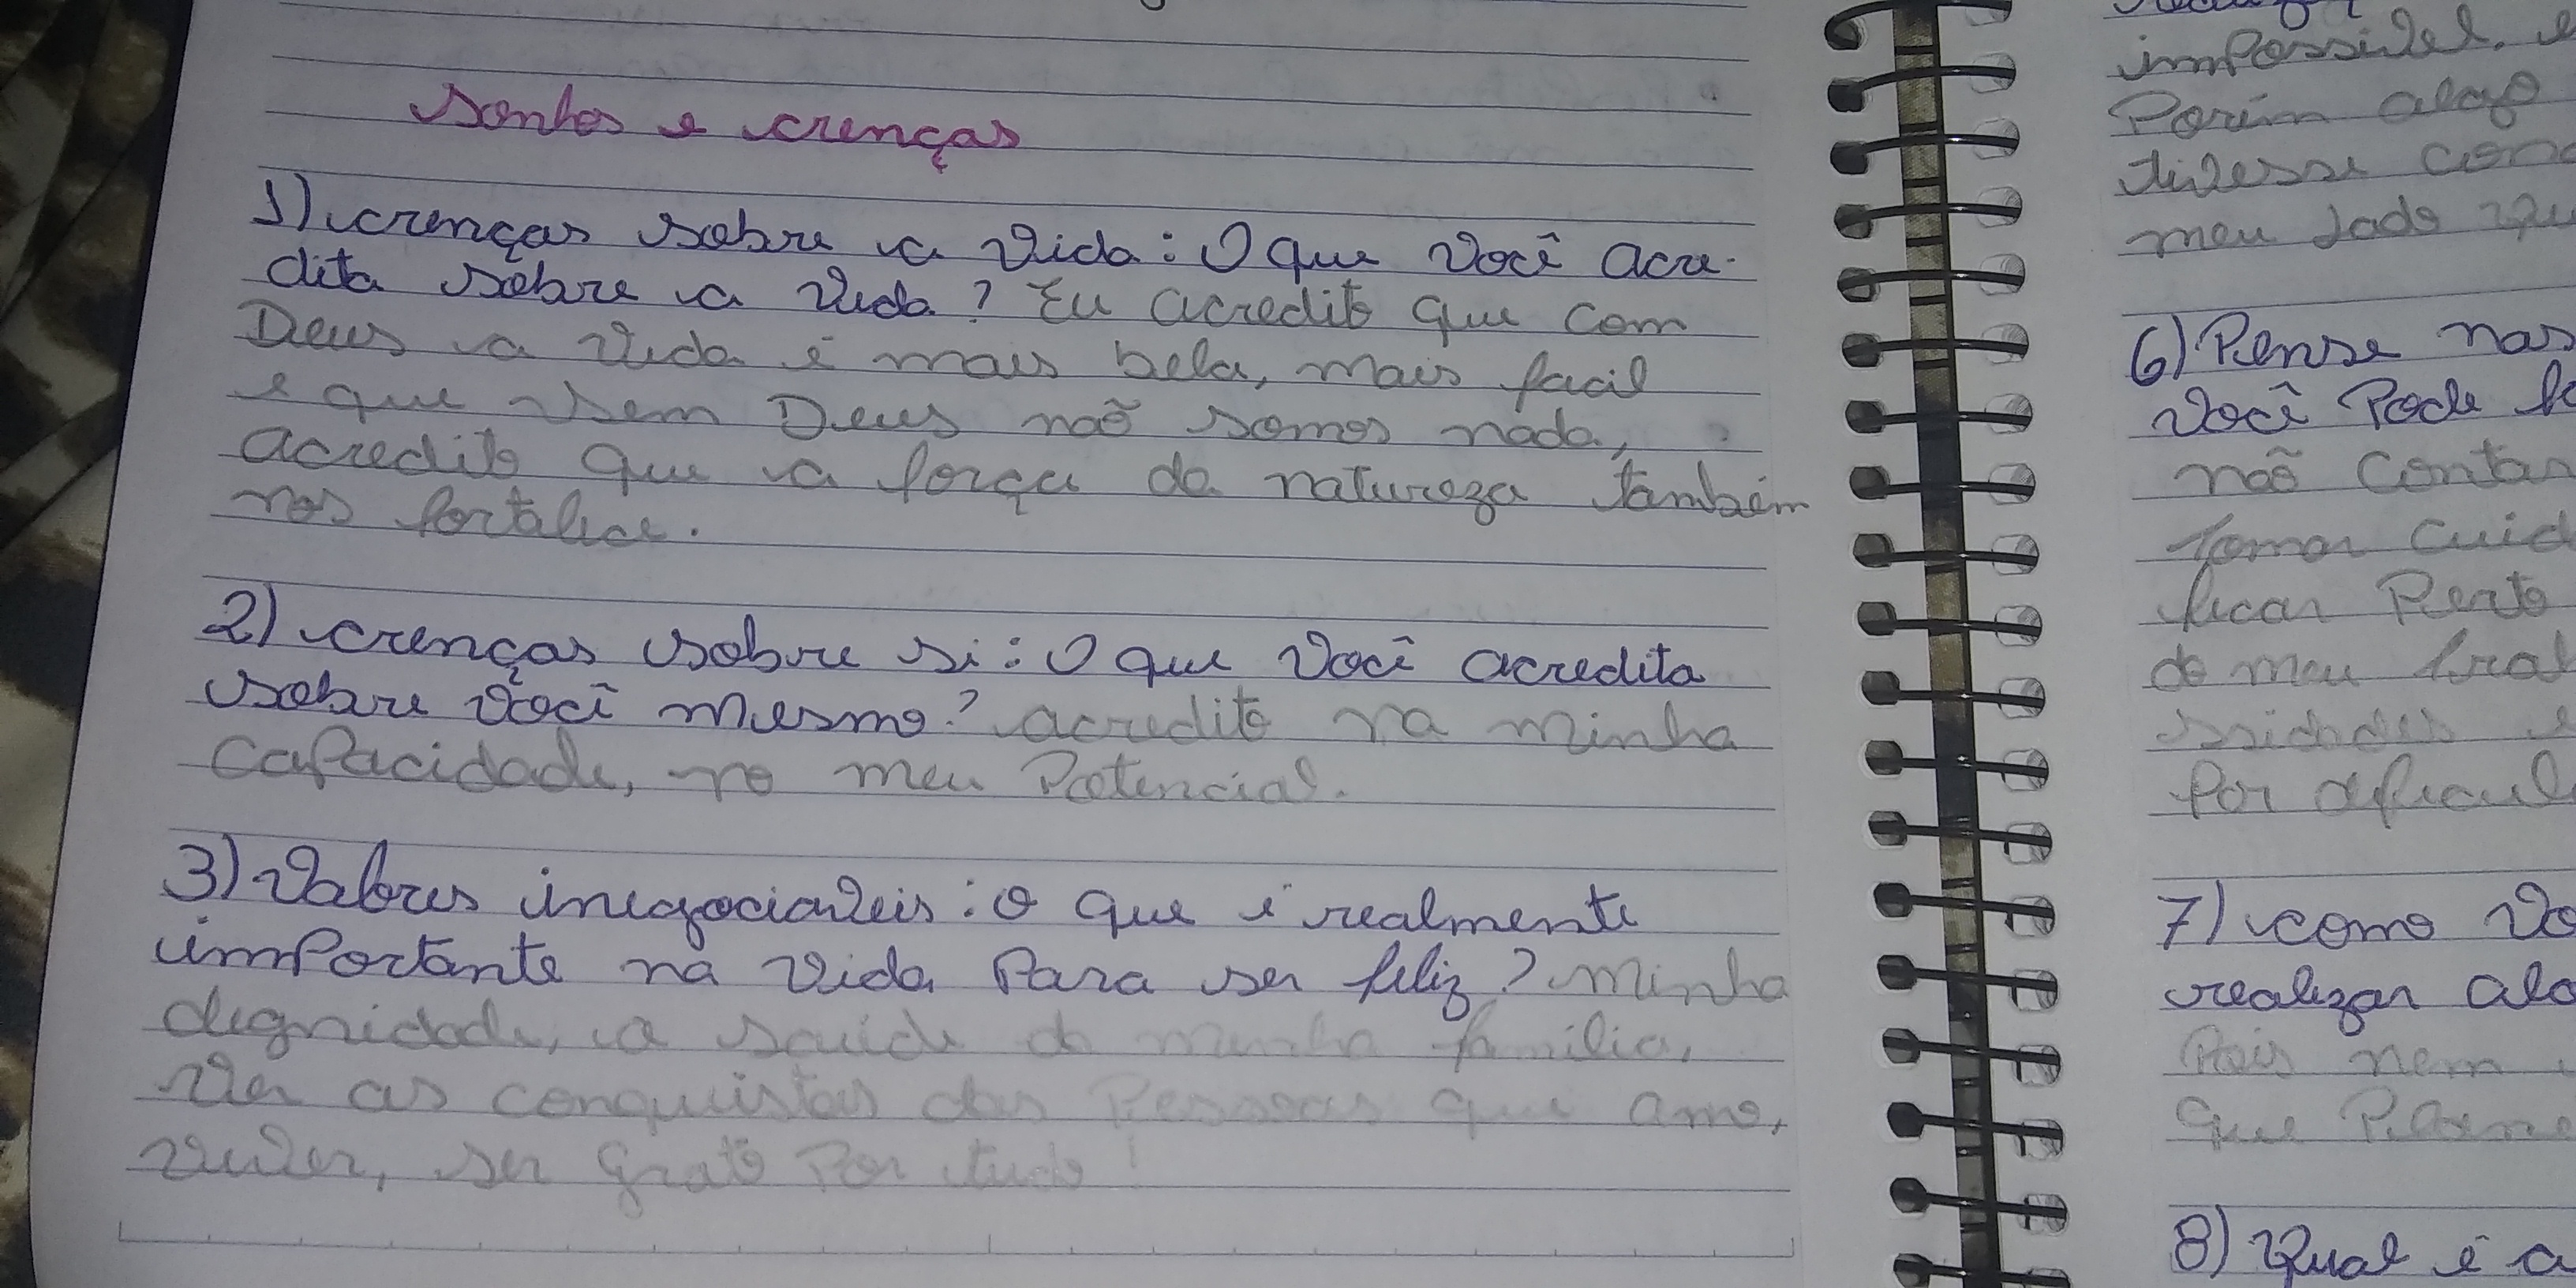 Sonhos e crenças
1) crenças sobre a vida: O que você acre-
dita sobre a vida? Eu acredito que com
Deus a vida é mais bela, mais facil
e que sem Deus não somos nada,
acredito que a força da natureza também
nos fortalece.
2) crenças sobre si: O que você acredita
sobre você mesmo? acredito na minha
capacidade, no meu potencial.
3) Valores inegociaveis: o que é realmente
importante na vida para ser feliz? minha
dignidade, a saúde da minha familia,
ver as conquistas das pessoas que amo,
viver, ser grato por tudo!
impossivel, e
Porém algo
tivesse
meu lado
6) Pense nas
você pode
não contar
Tomar
ficar perto
do meu
por
7) como
realizar
Pois nem
que
8) Qual é a